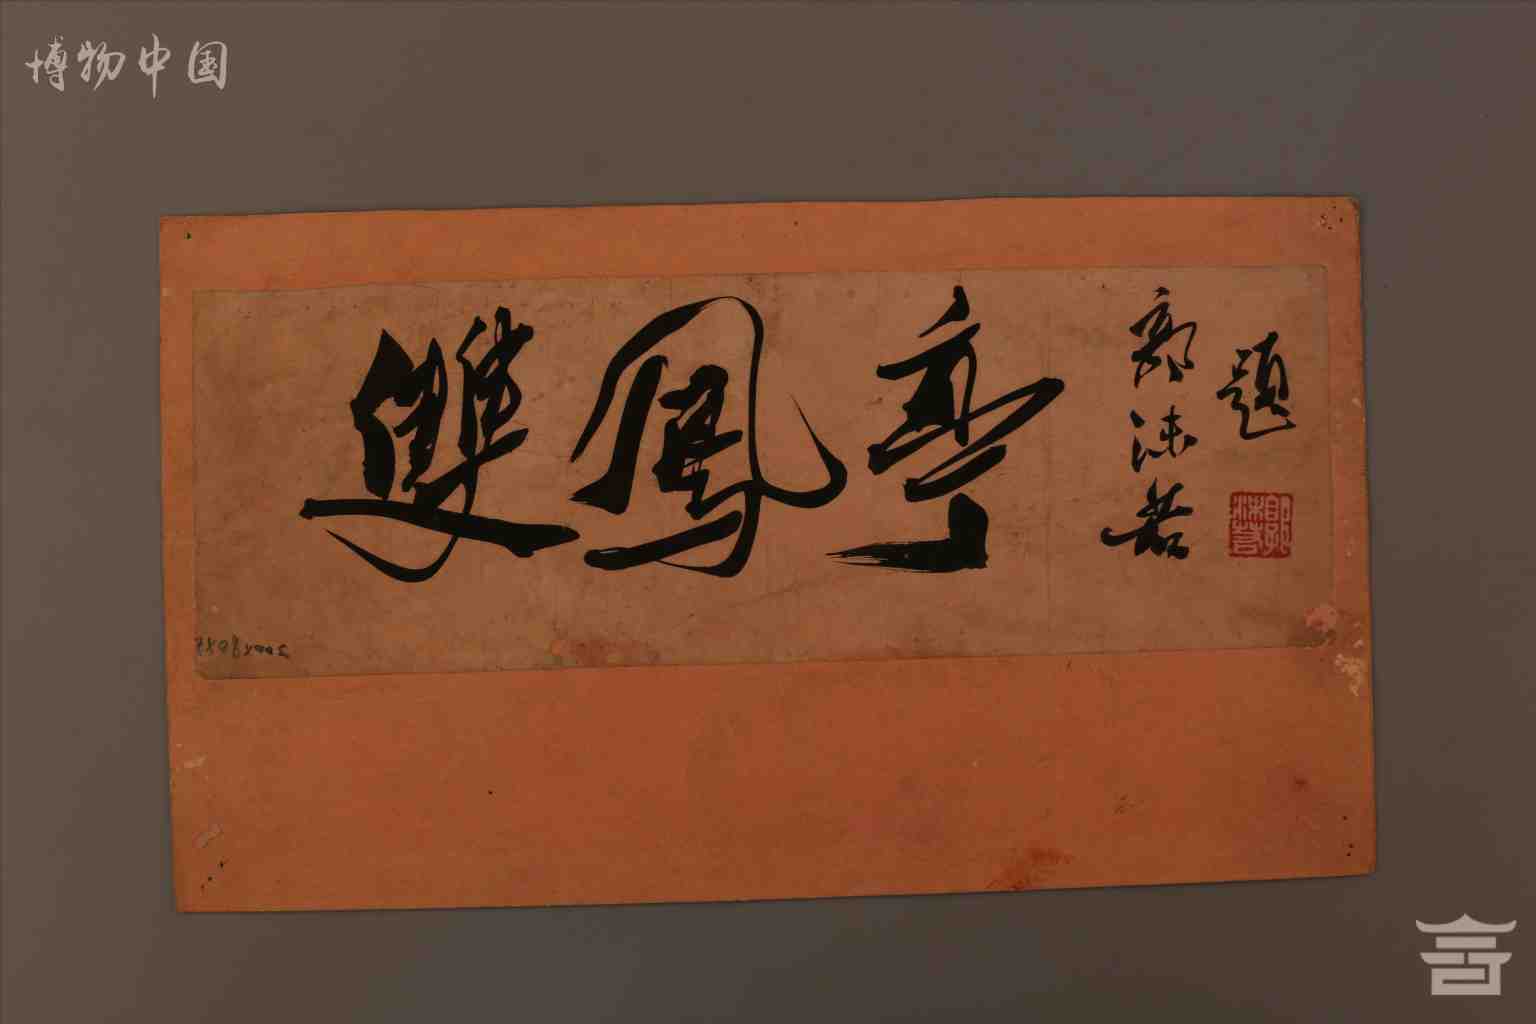 博物中国
雙鳳亭
郭沫若
題
郭沫若